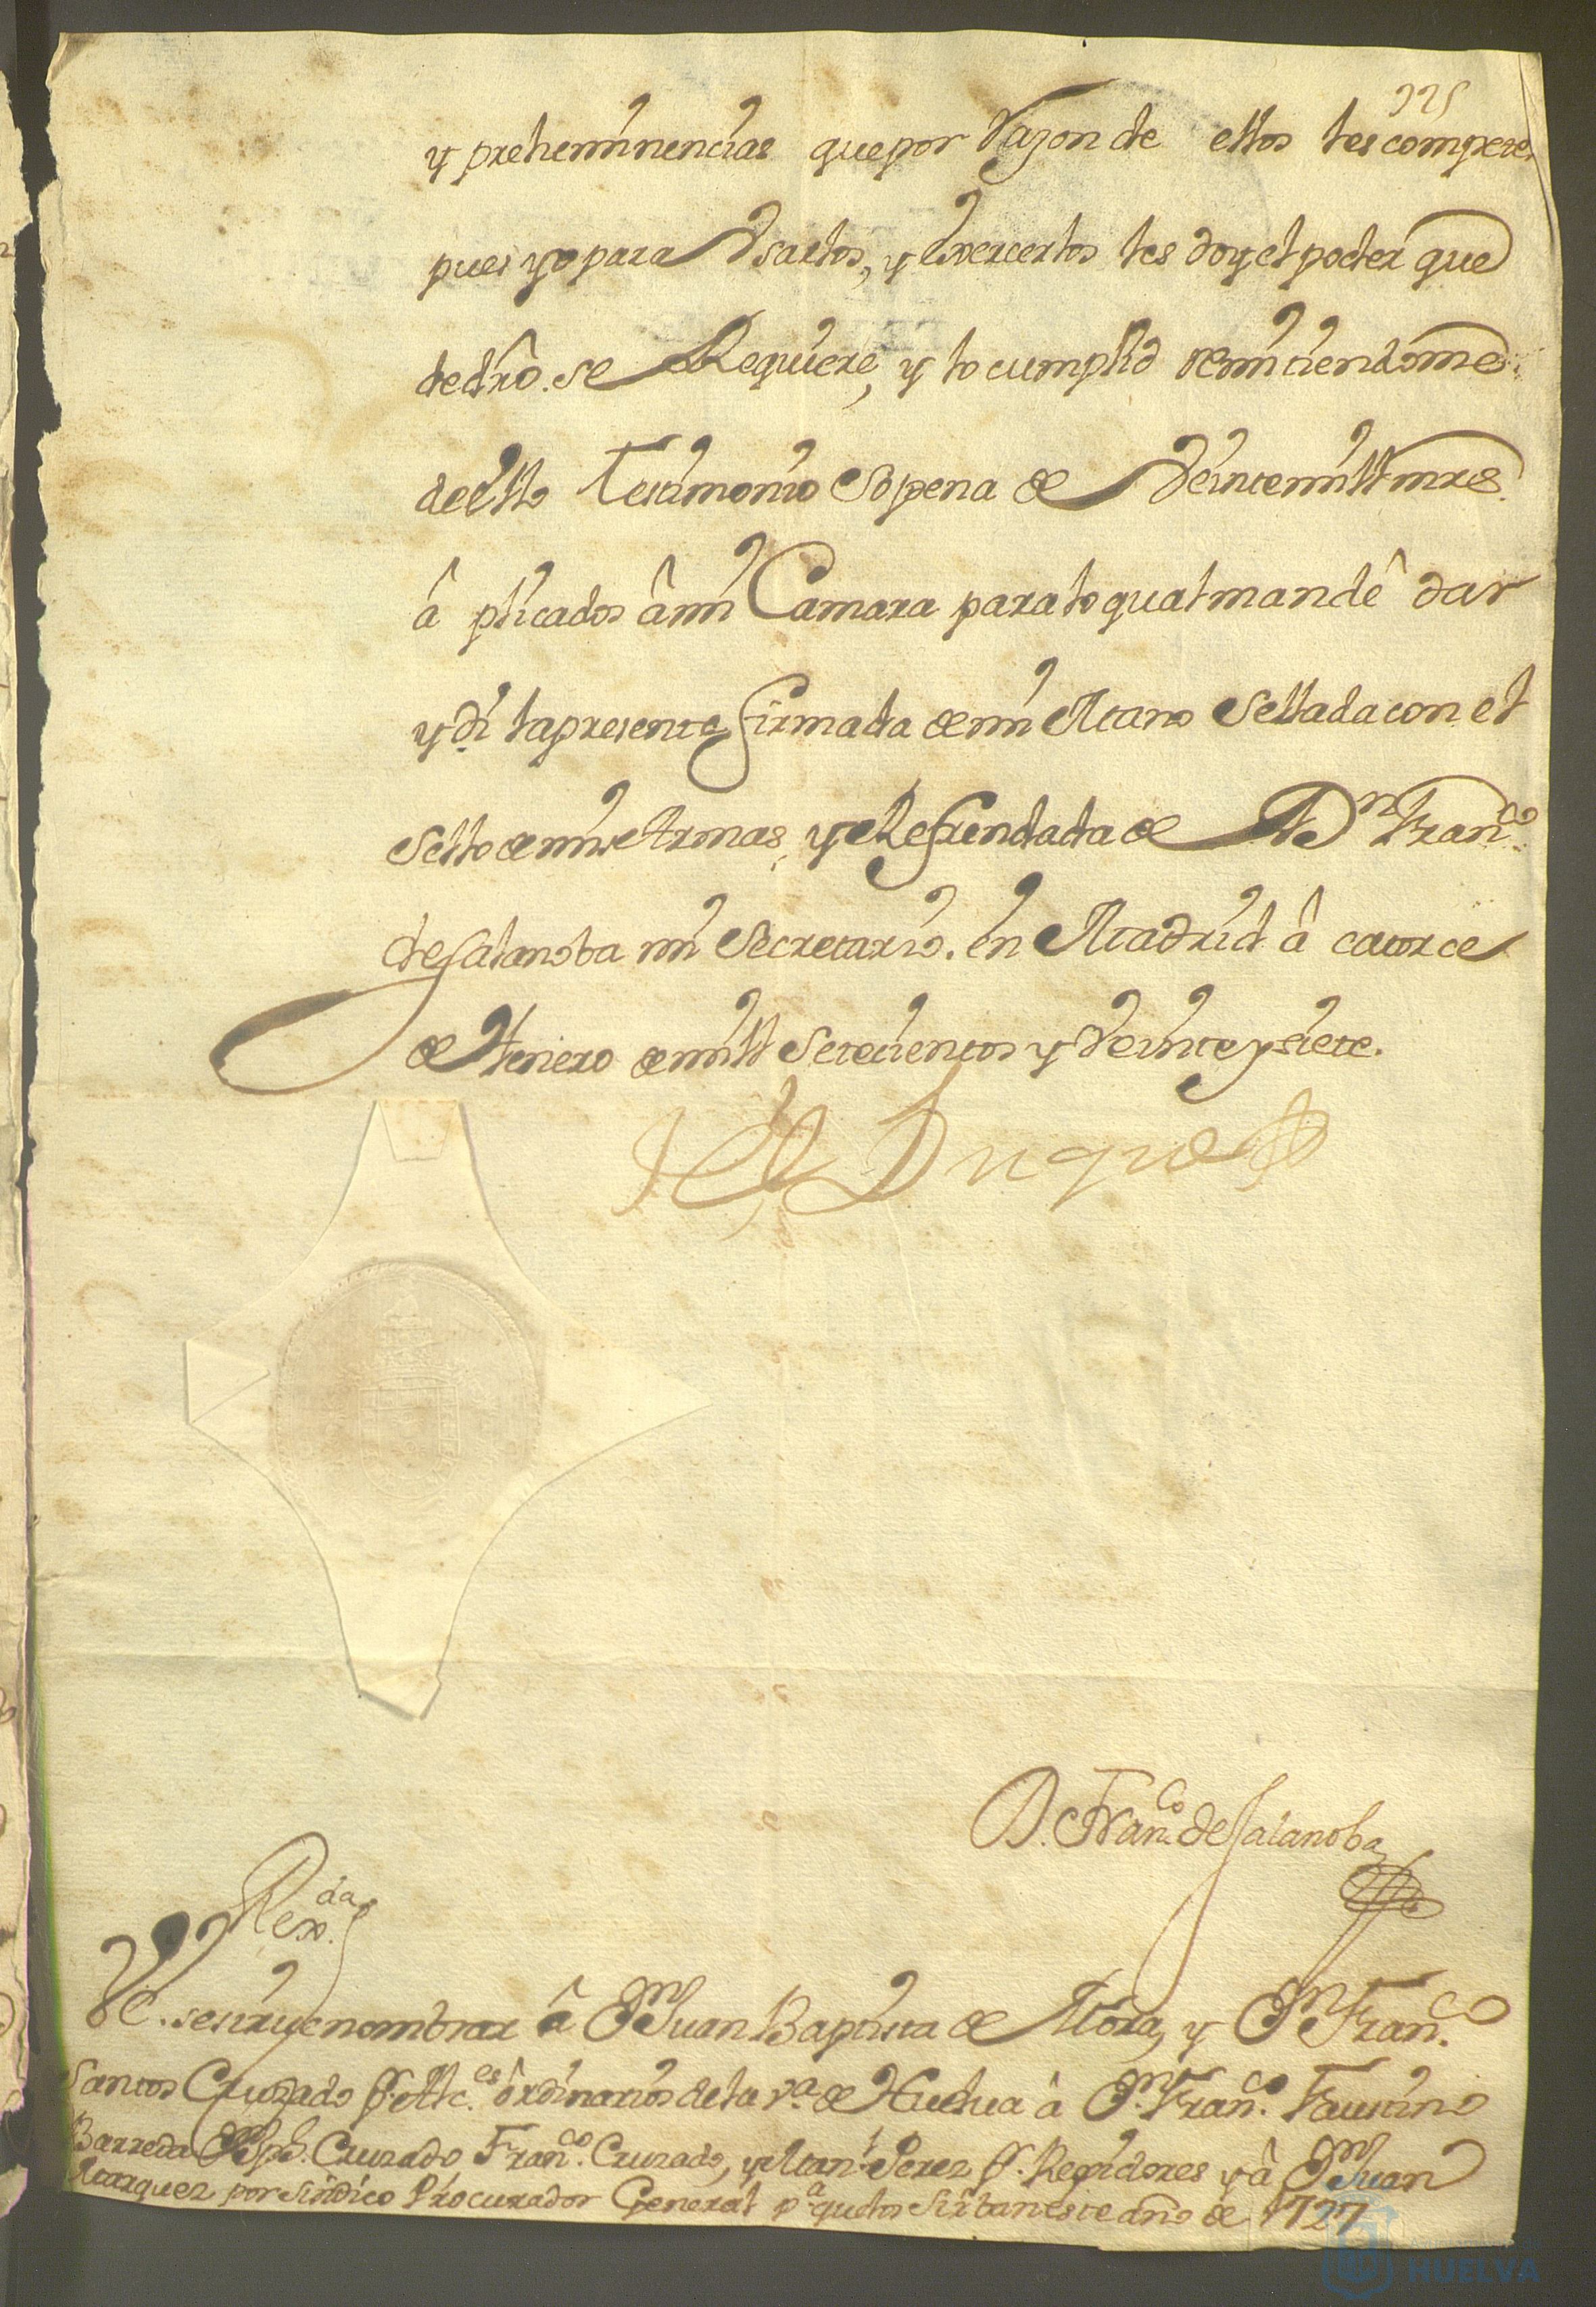 225
y preheminencias que por Razon de ellos les compete,
pues yo para Vsarlos, y exercerlos les doy el poder que
de dro. se Requiere, y lo cumplid remitiendome
de ello Testimonio So pena de Veinte mill mrs.
â plicados â mi Camara para lo qual mandê dar
y di la presente firmada de mi Mano Sellada con el
Sello de mis Armas, y Refrendada de Dn. Franco.
de Salanoba mi Secretario. en Madrid â catorce
de Henero de mill Setecientos y Veinte y siete.
El Duque
D. Franco. de Salanoba
Rexda.
VE. se sirve nombrar â Dn. Juan Baptista de Mora, y Dn. Franco.
Santos Cruzado Pr. Alces. ôrdinarios de la Va. de Huelva â Dn. Franco. Faustino
Barreda Dn. Jph. Cruzado Franco. Cruzado, y Manl. Perez Pr. Regidores y â Dn. Juan
Marquez por Sindico Procurador General pa. que los Sirban este año de 1727
HUELVA